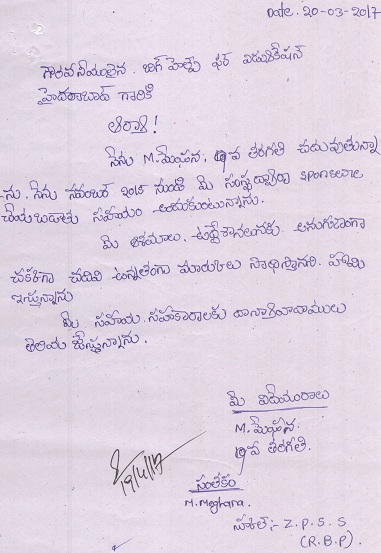 Date. 20-03-2017
గౌరవనీయులైన బిగ్ హెల్ప్ ఫర్ ఎడ్యుకేషన్
హైదరాబాద్ గారికి
నేను M. మేఘన, వ తరగతి చదువుతున్నా
-ను. నేను నవంబర్ 2015 నుండి మీ సంస్థ ద్వారా
సహాయం అందుకుంటున్నాను.
మీ ఆశయాలు, అనుగుణంగా
చక్కగా చదివి ఉన్నతంగా మార్కులు సాధిస్తానని హామి
ఇస్తున్నాను
మీ సహాయ సహకారాలకు
తెలియ జేస్తున్నాను.
మీ విధేయురాలు
M. మేఘన.
వ తరగతి.
19/4/17
సంతకం
M. Meghana.
స్కూల్ :- Z.P.S.S
(R.B.P).